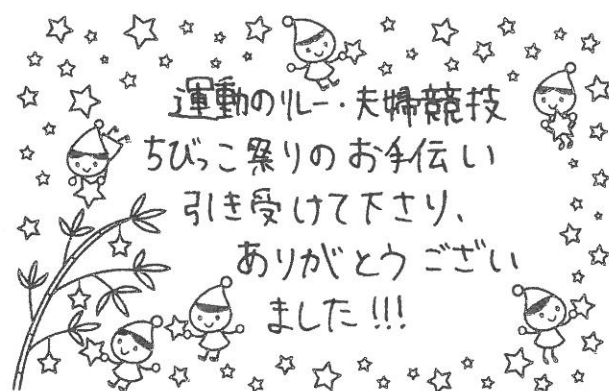 運動のリレー・夫婦競技
ちびっこ祭りのお手伝い
引き受けて下さり、
ありがとうござい
ました!!!